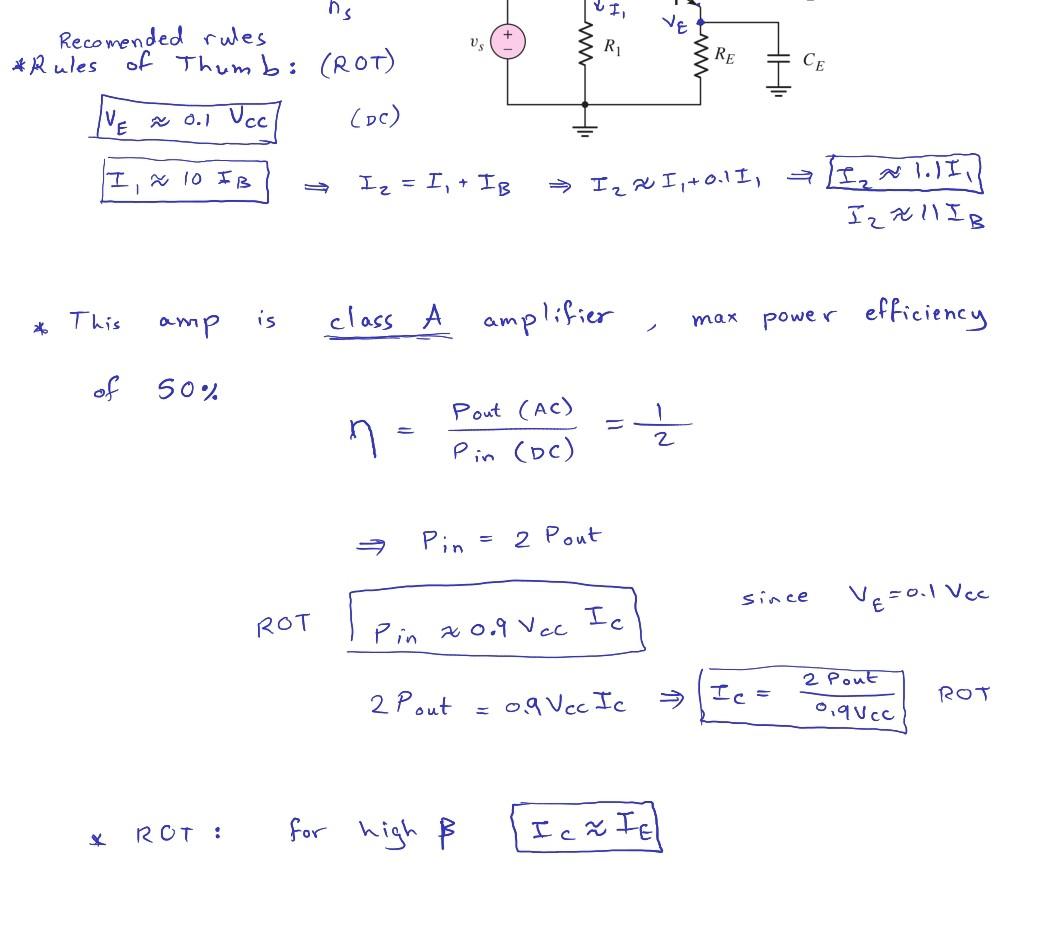 ns
↓ I₁
VE
vs
+
−
R₁
RE
CE
Recomended rules
* Rules of Thumb: (ROT)
VE ≈ 0.1 Vcc (DC)
I₁ ≈ 10 IB ⇒ I₂ = I₁ + IB ⇒ I₂ ≈ I₁+0.1I₁ ⇒ I₂ ≈ 1.1I₁
I₂ ≈ 11IB
* This amp is class A amplifier, max power efficiency
of 50%
η = Pout (AC) / Pin (DC) = 1/2
⇒ Pin = 2 Pout
ROT Pin ≈ 0.9 Vcc Ic since VE=0.1 Vcc
2 Pout = 0.9 Vcc Ic ⇒ Ic = 2 Pout / 0.9Vcc ROT
* ROT: for high β Ic ≈ IE